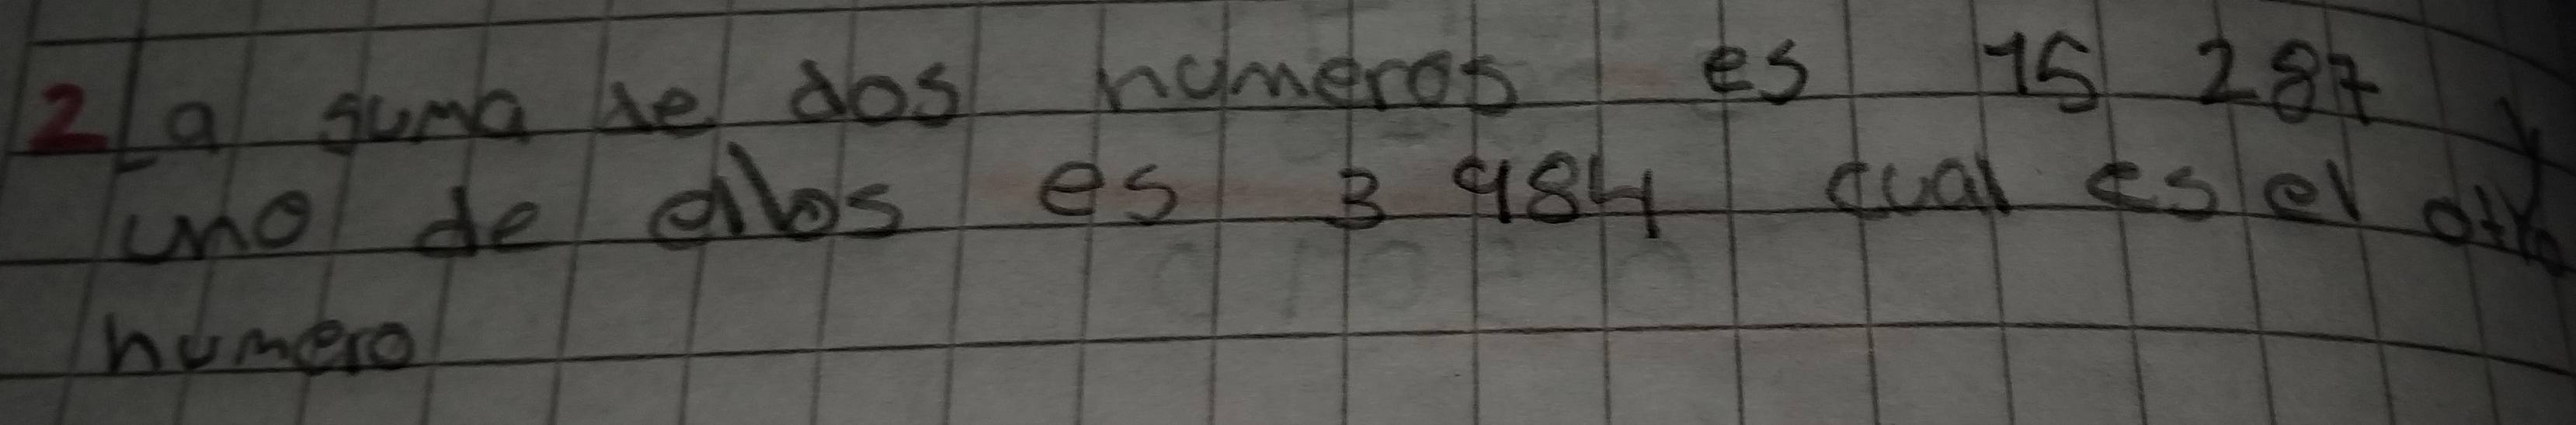 2 La suma de dos numeros es 15 287 y
uno de ellos es 3 984 cual es el otro
numero